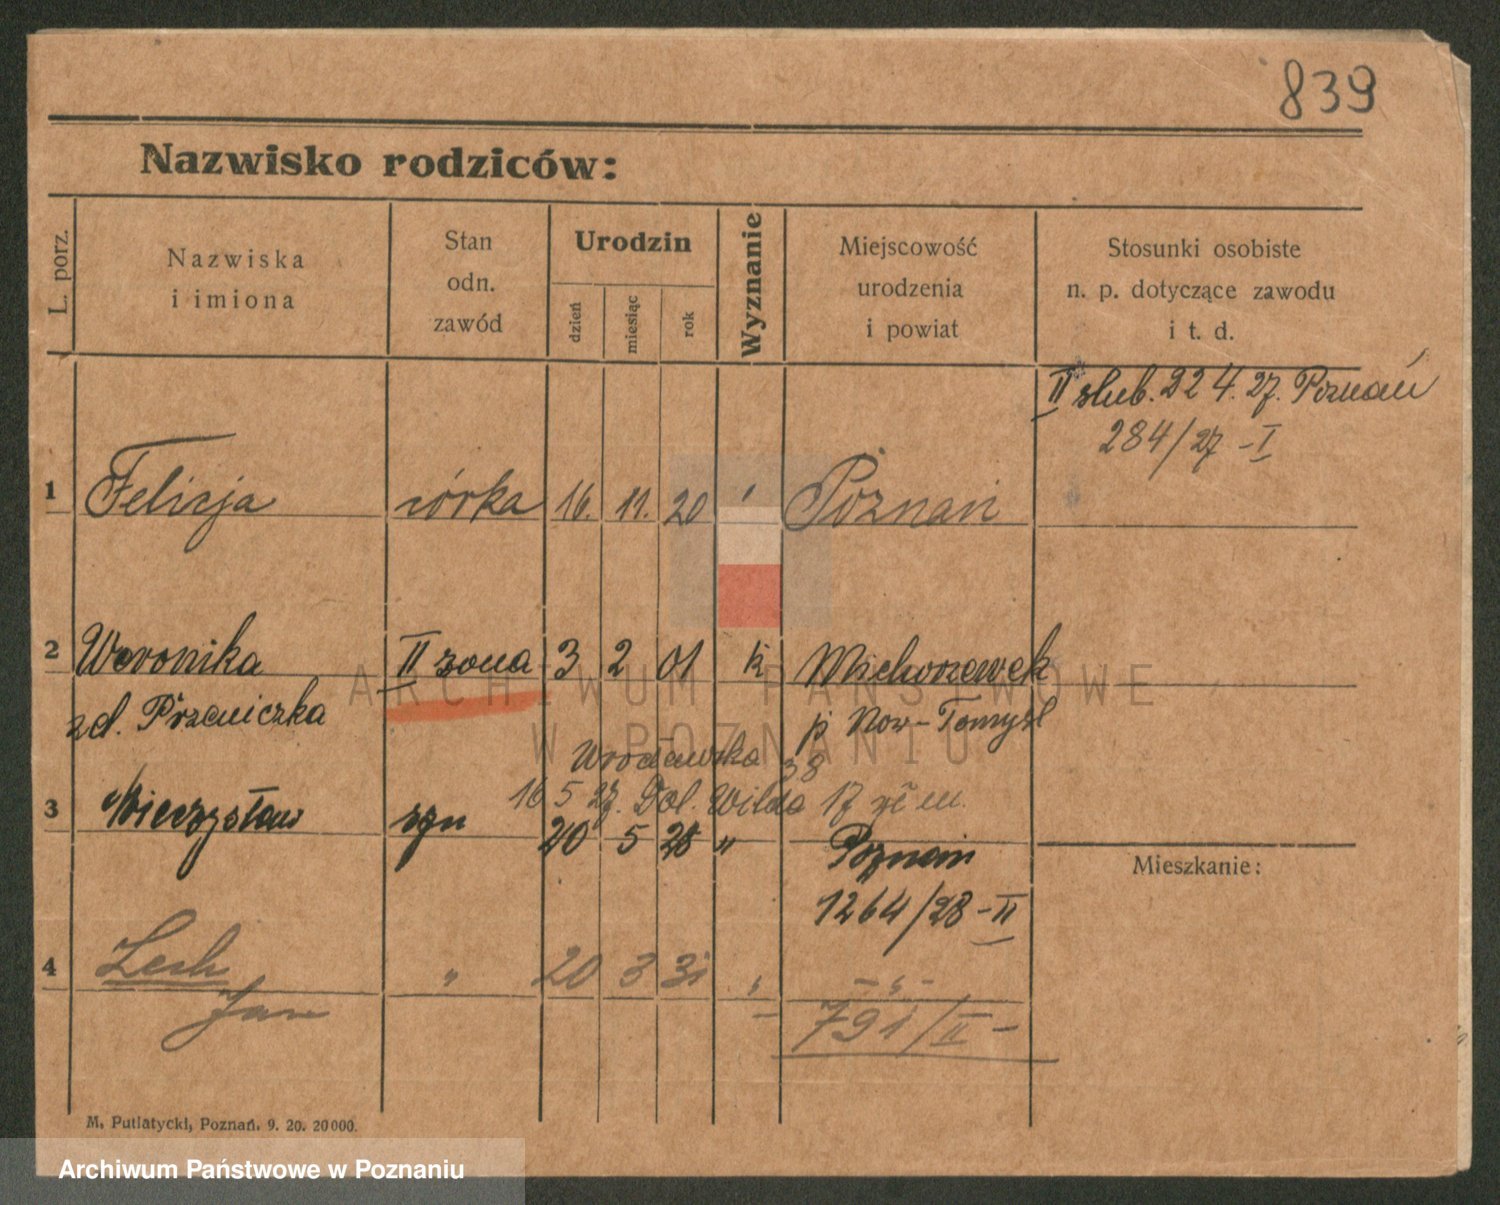 839
Nazwisko rodziców:
L. porz.
Nazwiska
i imiona
Stan
odn.
zawód
Urodzin
dzień
miesiąc
rok
Wyznanie
Miejscowość
urodzenia
i powiat
Stosunki osobiste
n. p. dotyczące zawodu
i t. d.
II slub. 22 4. 27. Poznań
284/27 - I
1 Felicja córka 16. 11. 20 Poznań
2 Weronika II żona 3 2 01 k Michorzewek
zd. Przeniczka p Now-Tomyśl
Wrocławska 38
16 5 27. Dol. Wilda 17
3 Mieczysław syn 20 5 28 " Poznań
1264/28 - II
Mieszkanie:
4 Lech " 20 3 31 " - " -
Jan 791/II -
M. Putiatycki, Poznań. 9. 20. 20000.
ARCHIWUM PAŃSTWOWE
W POZNANIU
Archiwum Państwowe w Poznaniu